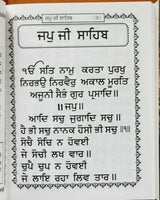 ਜਪੁ ਜੀ ਸਾਹਿਬ
ਜਪੁ ਜੀ ਸਾਹਿਬ
ੴ ਸਤਿ ਨਾਮੁ ਕਰਤਾ ਪੁਰਖੁ
ਨਿਰਭਉ ਨਿਰਵੈਰੁ ਅਕਾਲ ਮੂਰਤਿ
ਅਜੂਨੀ ਸੈਭੰ ਗੁਰ ਪ੍ਰਸਾਦਿ॥
॥ਜਪੁ॥
ਆਦਿ ਸਚੁ ਜੁਗਾਦਿ ਸਚੁ॥
ਹੈ ਭੀ ਸਚੁ ਨਾਨਕ ਹੋਸੀ ਭੀ ਸਚੁ॥੧॥
ਸੋਚੈ ਸੋਚਿ ਨ ਹੋਵਈ
ਜੇ ਸੋਚੀ ਲਖ ਵਾਰ॥
ਚੁਪੈ ਚੁਪ ਨ ਹੋਵਈ
ਜੇ ਲਾਇ ਰਹਾ ਲਿਵ ਤਾਰ॥